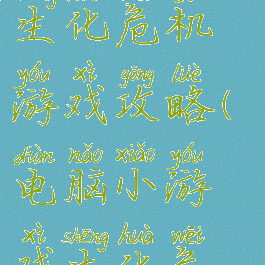 生化危机
yóu xì gōng lüè
游戏攻略(
diàn nǎo xiǎo yóu
电脑小游
xì shēng huà wēi